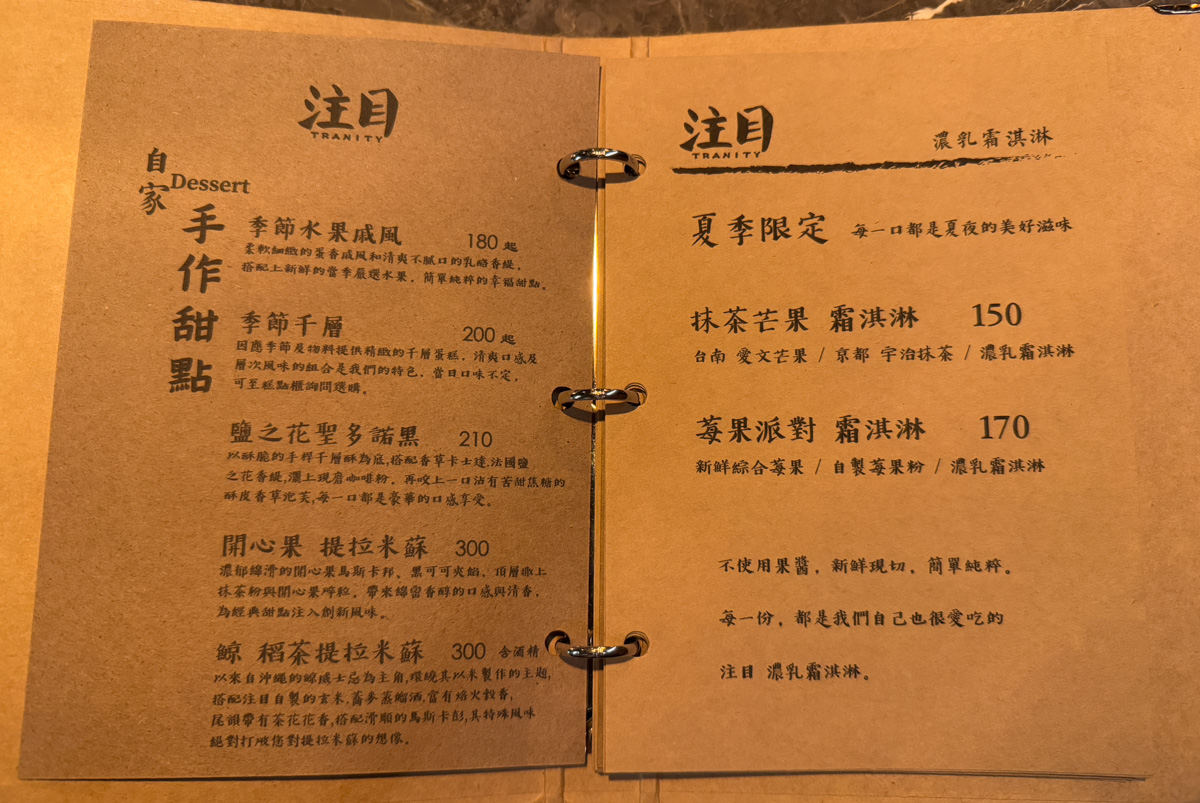 注目
TRANITY
自家
Dessert
手作甜點
季節水果戚風 180 起
柔軟細緻的蛋香戚風和清爽不膩口的乳酪香緹，
搭配上新鮮的當季嚴選水果，簡單純粹的幸福甜點。
季節千層 200 起
因應季節及物料提供精緻的千層蛋糕，清爽口感及
層次風味的組合是我們的特色，當日口味不定，
可至糕點櫃詢問選購。
鹽之花聖多諾黑 210
以酥脆的手桿千層酥為底,搭配香草卡士達,法國鹽
之花香緹,灑上現磨咖啡粉，再咬上一口沾有苦甜焦糖的
酥皮香草泡芙,每一口都是豪華的口感享受。
開心果 提拉米蘇 300
濃郁綿滑的開心果馬斯卡邦、黑可可夾餡，頂層佈上
抹茶粉與開心果碎粒，帶來綿留香醇的口感與清香，
為經典甜點注入創新風味。
鯨 稻茶提拉米蘇 300 含酒精
以來自沖繩的鯨威士忌為主角,環繞其以米製作的主題,
搭配注目自製的玄米,蕎麥蒸餾酒,富有焙火穀香,
尾韻帶有茶花花香,搭配滑順的馬斯卡彭,其特殊風味
絕對打破您對提拉米蘇的想像。
注目
TRANITY
濃乳霜淇淋
夏季限定 每一口都是夏夜的美好滋味
抹茶芒果 霜淇淋 150
台南 愛文芒果 / 京都 宇治抹茶 / 濃乳霜淇淋
莓果派對 霜淇淋 170
新鮮綜合莓果 / 自製莓果粉 / 濃乳霜淇淋
不使用果醬，新鮮現切，簡單純粹。
每一份，都是我們自己也很愛吃的
注目 濃乳霜淇淋。